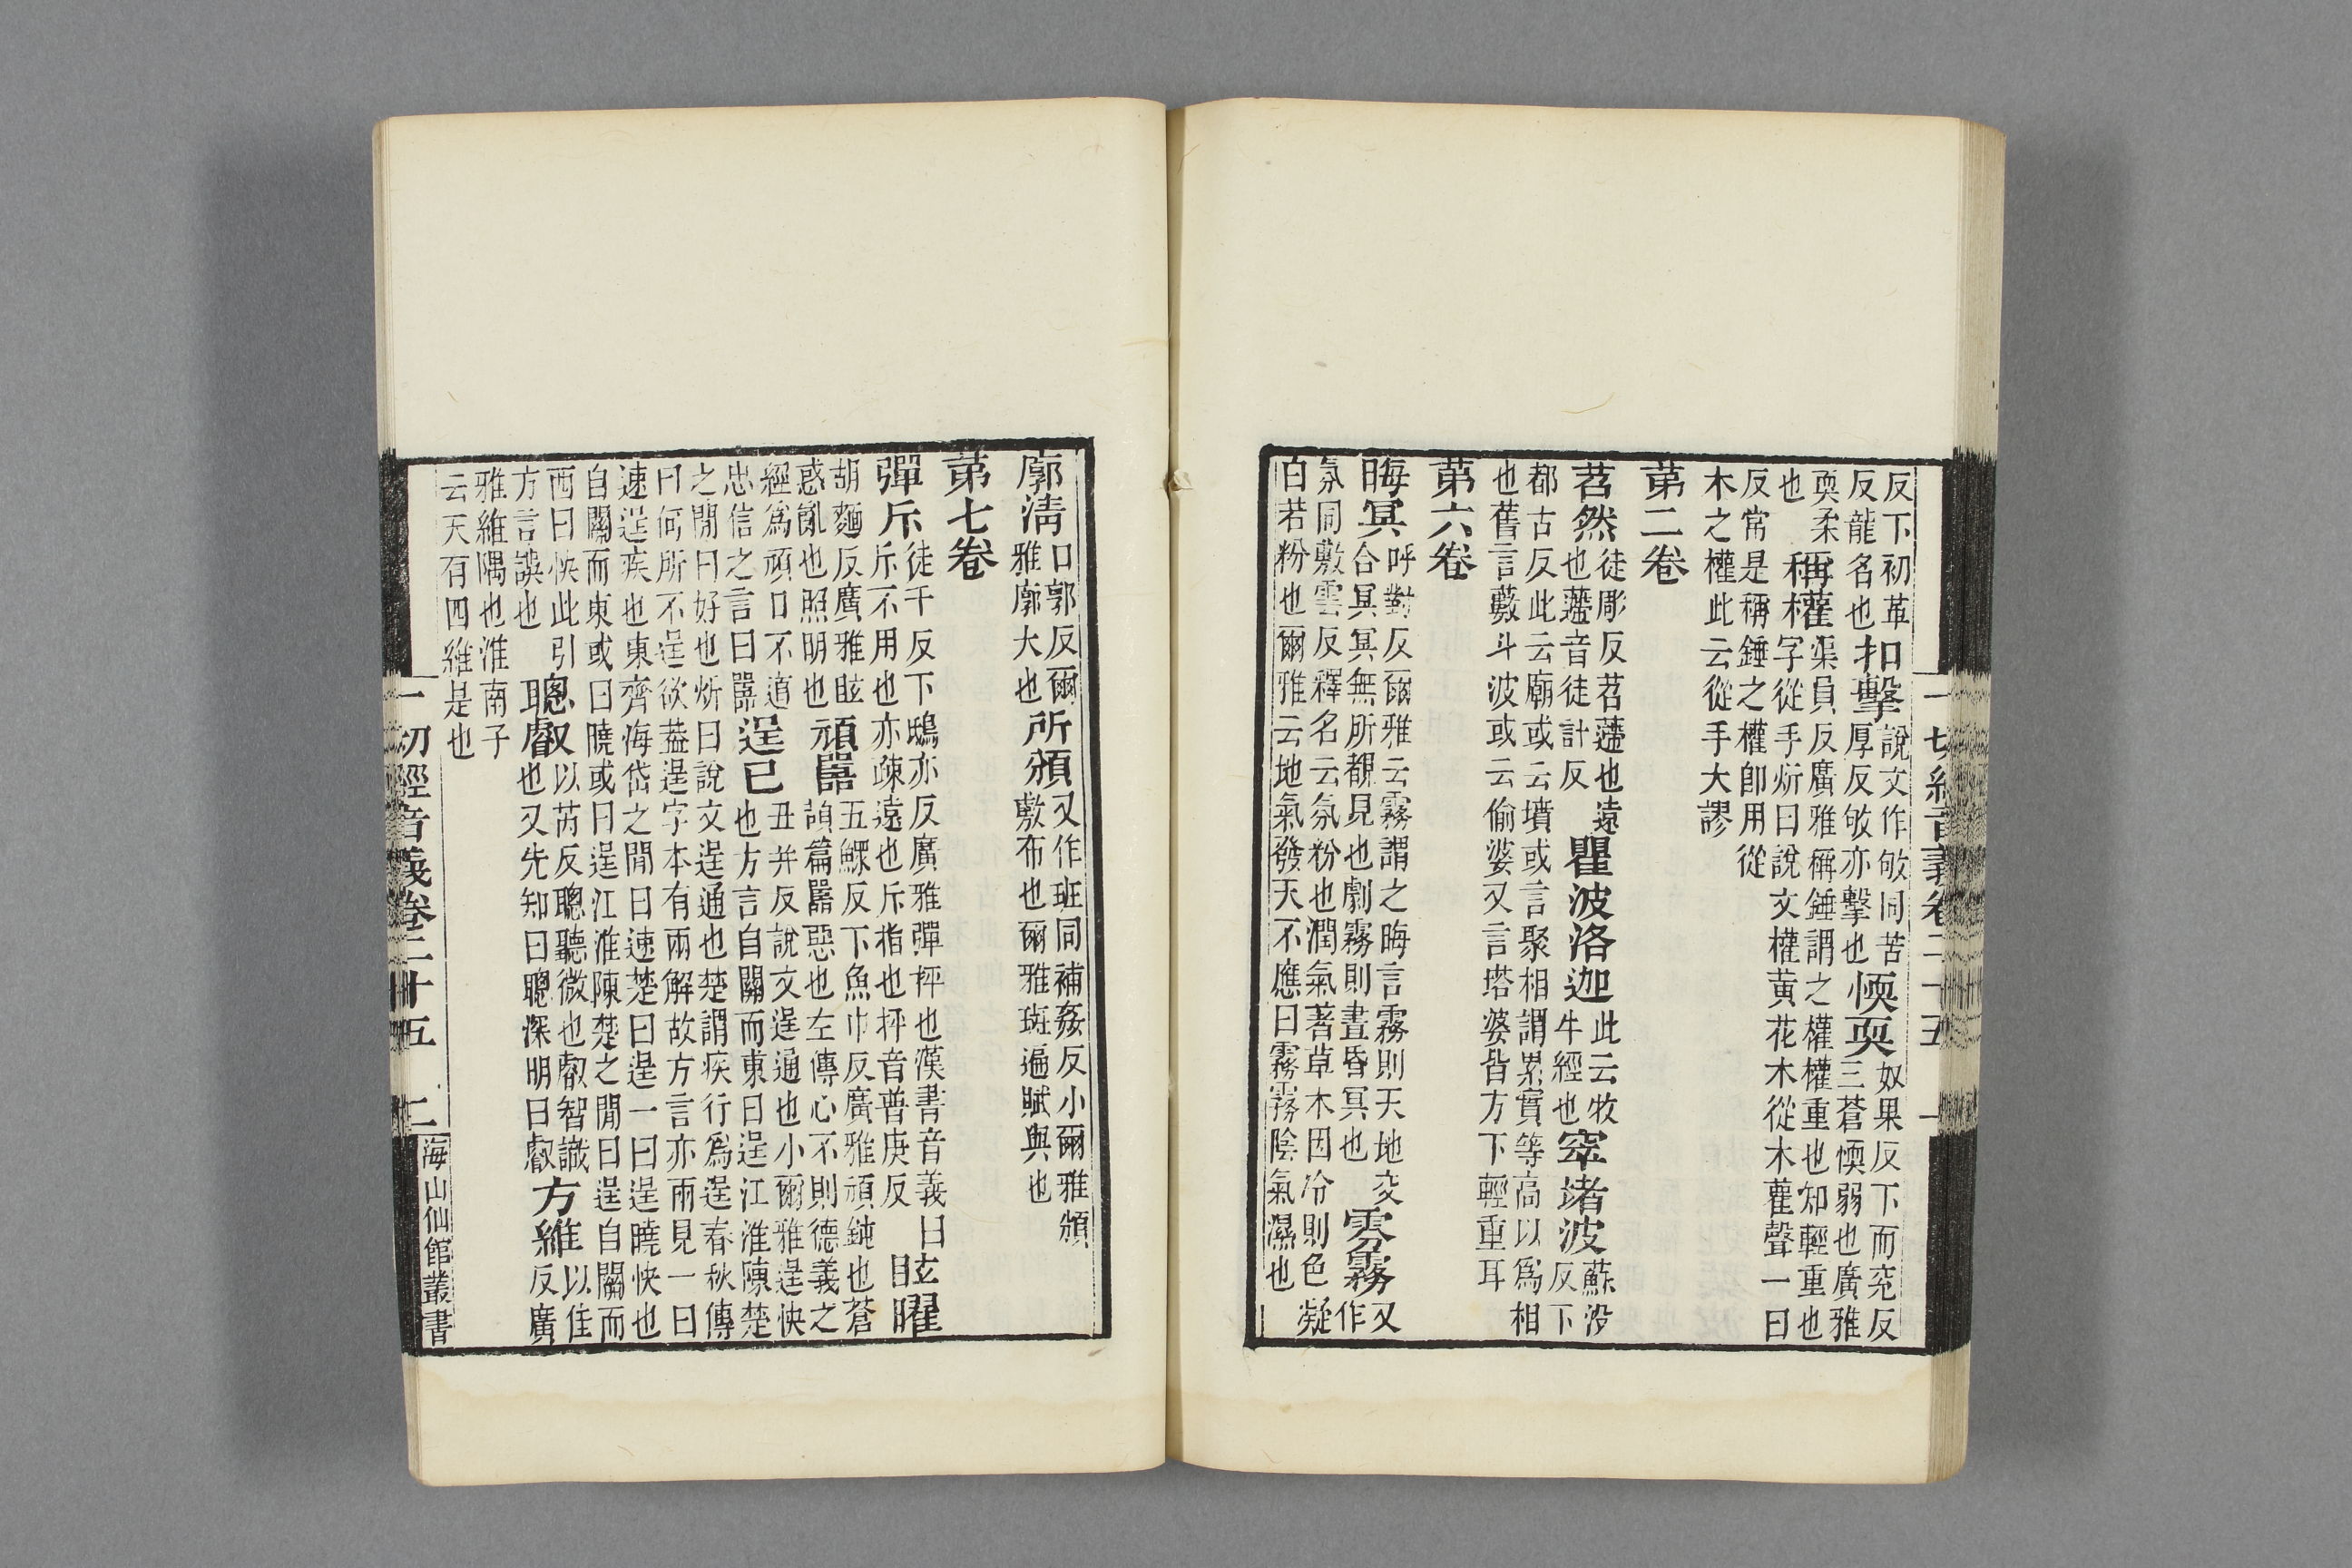 一切經音義卷二十五 一
反下初革
反龍名也 扣擊 說文作敂同苦
厚反敂亦擊也 愞耎 奴果反下而兖反
三蒼愞弱也廣雅
耎柔
也 稱權 渠員反廣雅稱錘謂之權權重也知輕重也
字從手炘曰說文權黄花木從木雚聲一曰
反常是稱錘之權卽用從
木之權此云從手大謬
第二卷
苕然 徒彫反苕遰也遠
也遰音徒計反 瞿波洛迦 此云牧
牛經也 窣堵波 蘇沒
反下
都古反此云廟或云墳或言聚相謂累寶等高以爲相
也舊言藪斗波或云偷婆又言塔婆皆方下輕重耳
第六卷
晦冥 呼對反爾雅云霧謂之晦言霧則天地交
合冥冥無所覩見也劇霧則晝昏冥也 雰霧 又
作
氛同敷雲反釋名云氛粉也潤氣著草木因冷則色凝
白若粉也爾雅云地氣發天不應曰霧霧陰氣濕也
廓淸 口郭反爾
雅廓大也 所頒 又作班同補姦反小爾雅頒
敷布也爾雅班遍賦與也
第七卷
彈斥 徒干反下鴟亦反廣雅彈抨也漢書音義曰
斥不用也亦疎遠也斥指也抨音普庚反 眩曜
胡麵反廣雅眩
惑亂也照明也 頑嚚 五鰥反下魚巾反廣雅頑鈍也蒼
頡篇嚚惡也左傳心不則德義之
經爲頑口不道
忠信之言曰嚚 逞已 丑井反說文逞通也小爾雅逞快
也方言自關而東曰逞江淮陳楚
之閒曰好也炘曰說文逞通也楚謂疾行爲逞春秋傳
曰何所不逞欲葢逞字本有兩解故方言亦兩見一曰
速逞疾也東齊海岱之閒曰速楚曰逞一曰逞曉快也
自關而東或曰曉或曰逞江淮陳楚之閒曰逞自關而
西曰快此引
方言誤也 聰叡 以芮反聰聽微也叡智識
也又先知曰聰深明曰叡 方維 以隹
反廣
雅維隅也淮南子
云天有四維是也
一切經音義卷二十五 二 海山仙館叢書